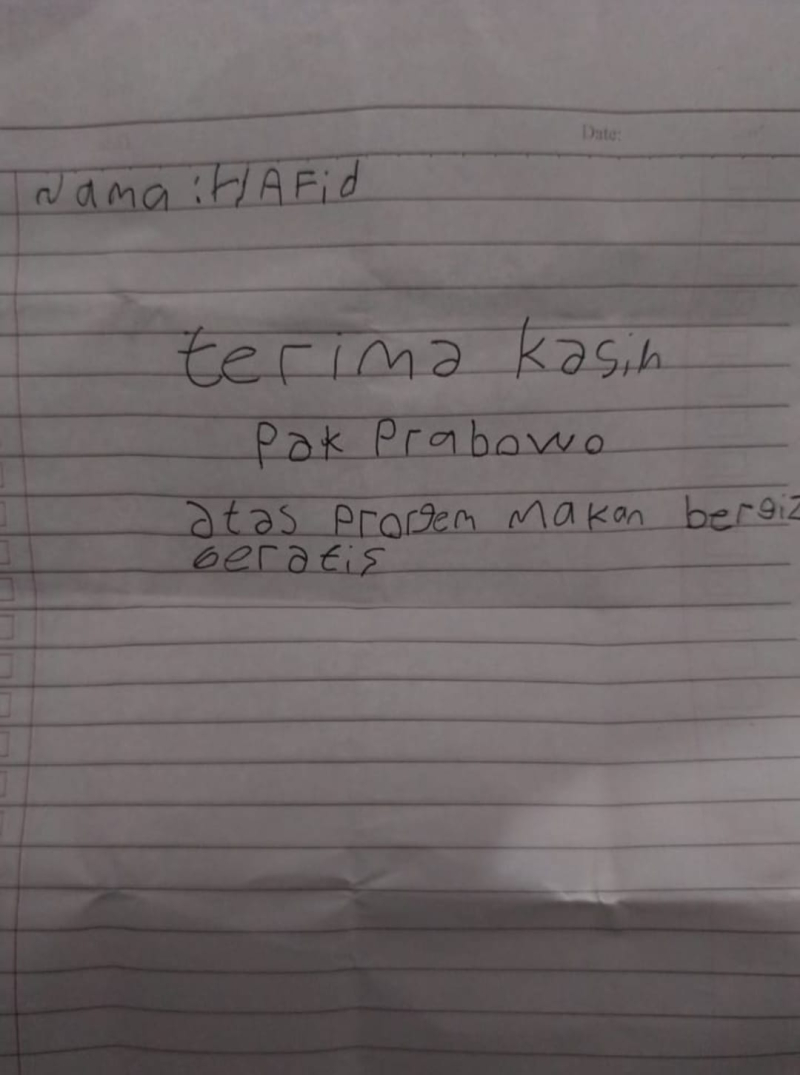 Date:
Nama : HAFid
terima kasih
Pak Prabowo
atas progem makan bergiz
geratis